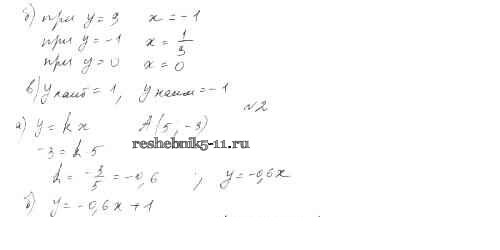 б) при y = 3 x = -1
при y = -1 x = 1/3
при y = 0 x = 0
в) y наиб = 1, y наим = -1
№2
а) y = kx A(5, -3)
-3 = k 5
reshebnik5-11.ru
k = -3/5 = -0,6 ; y = -0,6x
б) y = -0,6x + 1